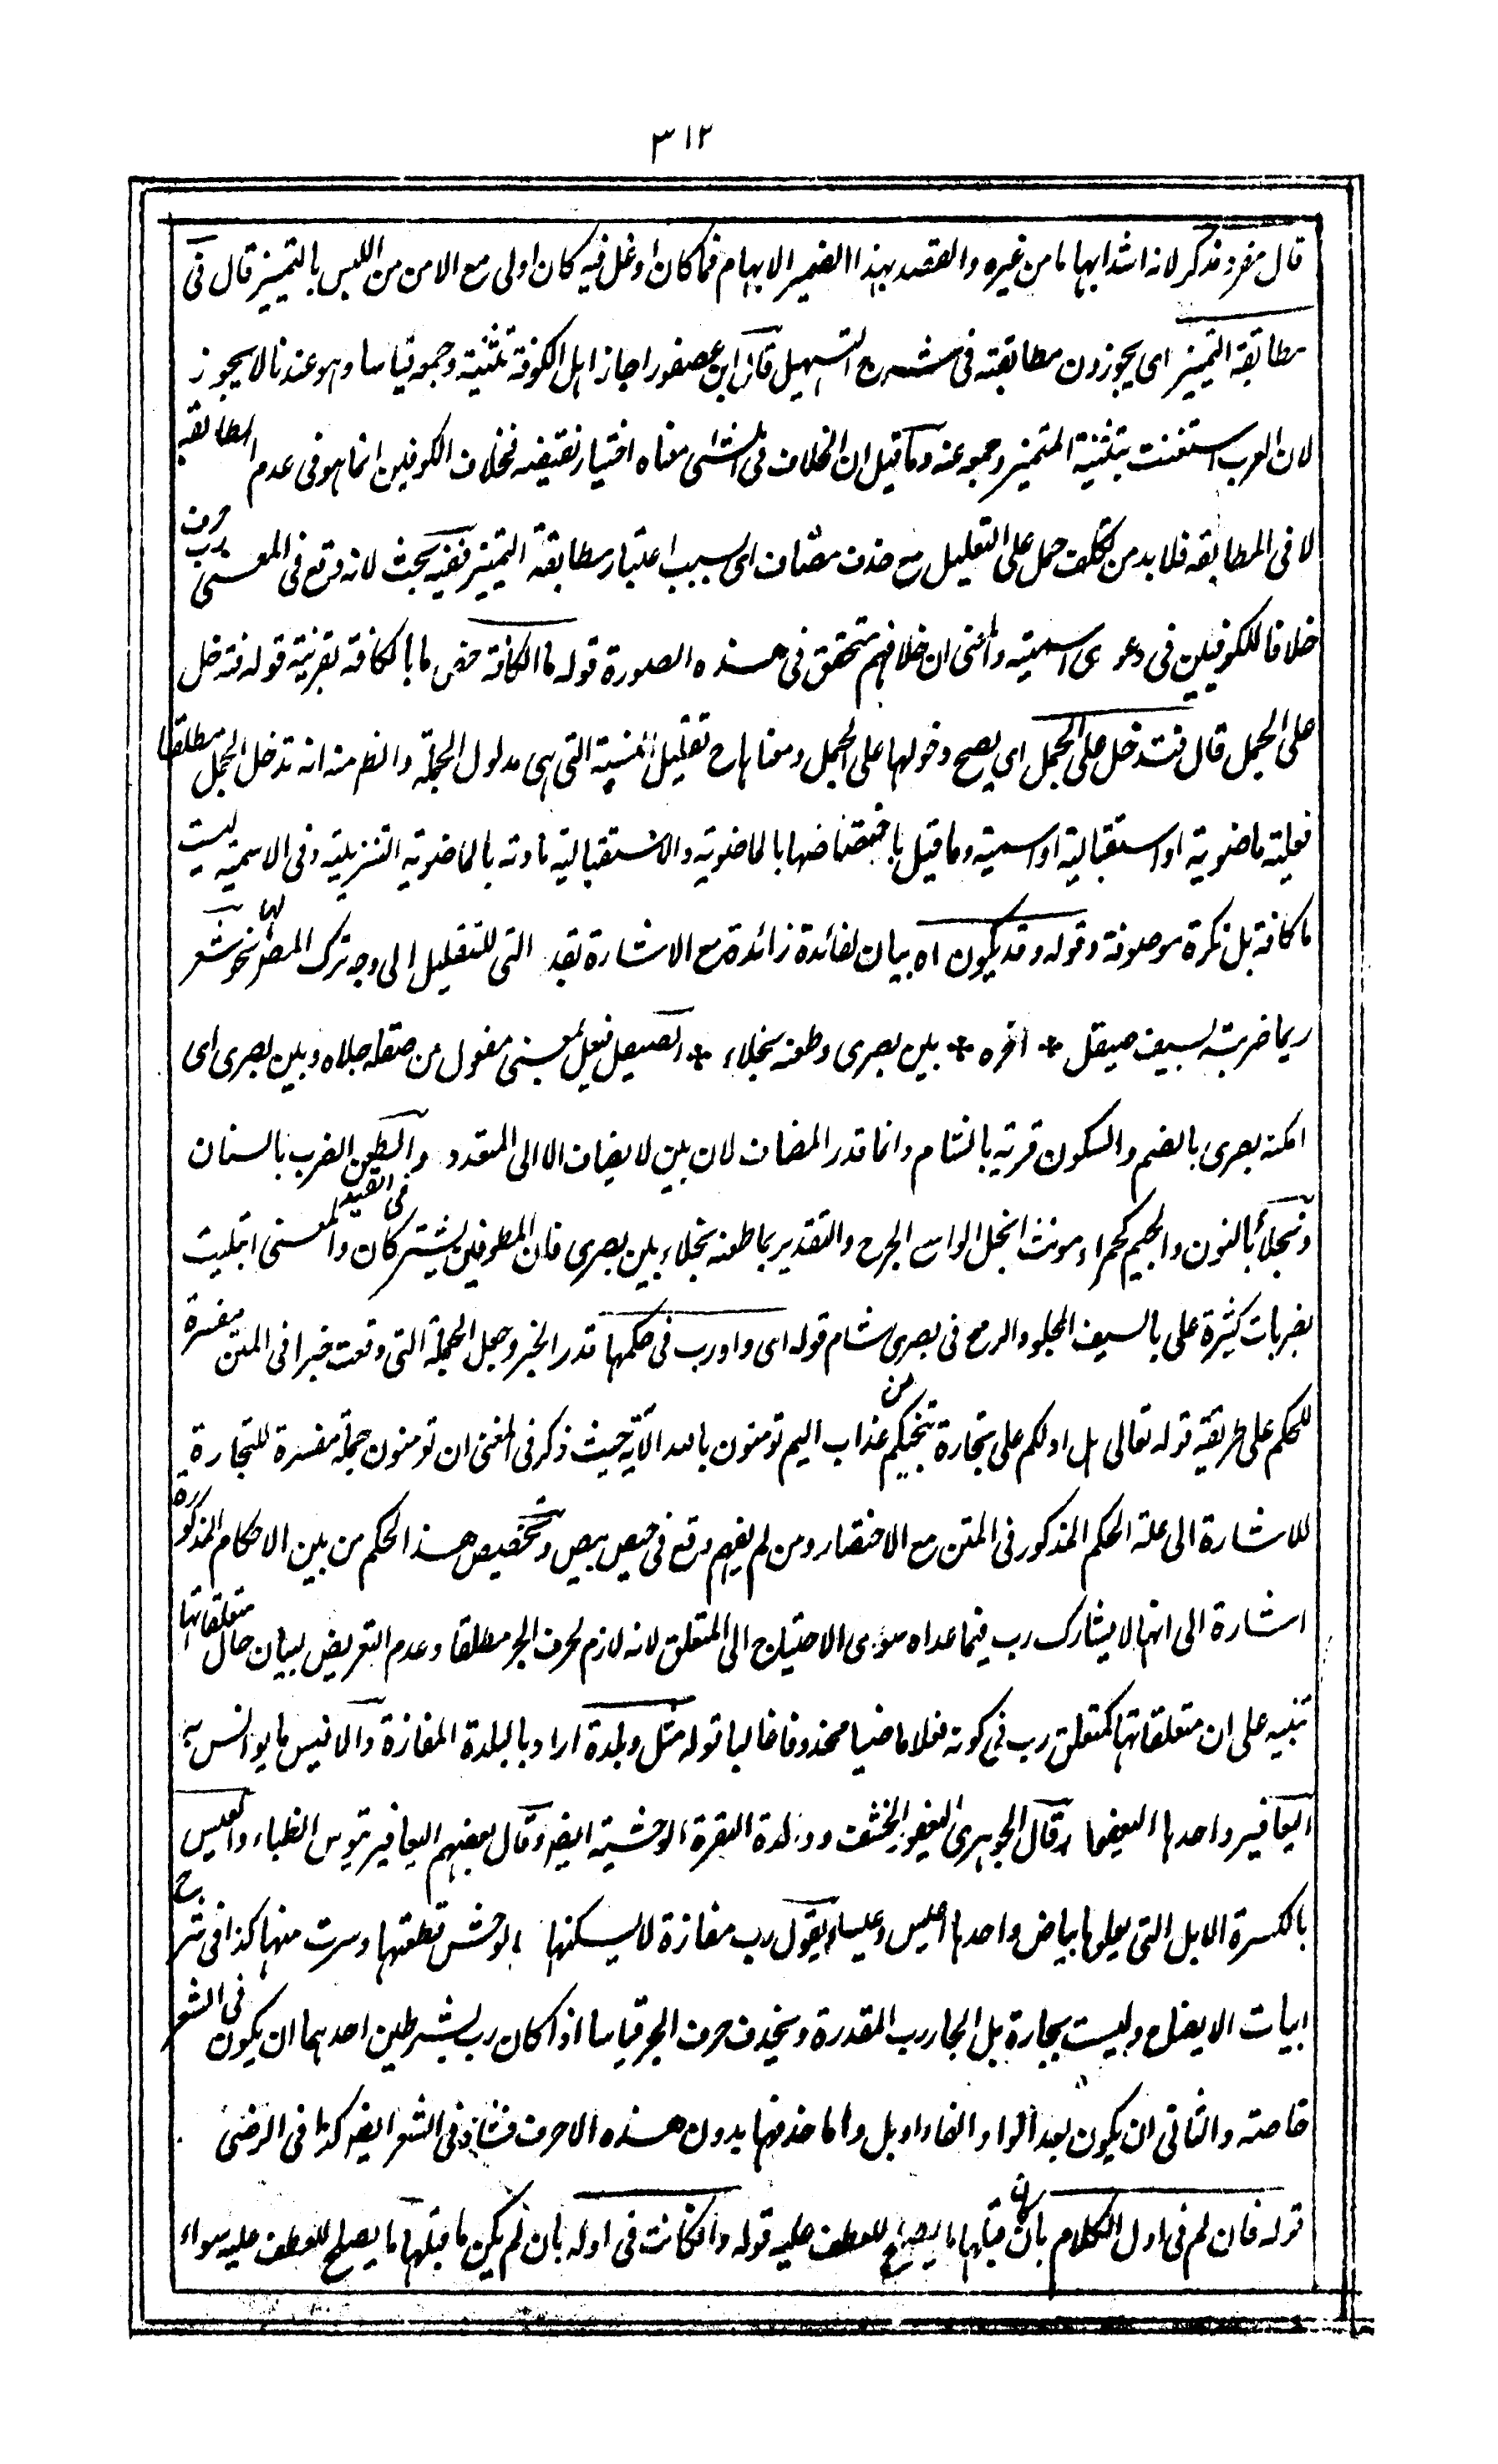 ٣١٢
قال مفرد مذكر لانه اشد ابهاما من غيره والقصد بهذا الضمير الابهام فما كان اوغل فيه كان اولى مع الامن من اللبس بالتميز قال فى
مطابقة التميز اى يجوزون مطابقته فى شرح التسهيل قال ابن عصفور اجاز اهل الكوفة تثنية وجمعه قياسا وهو عندنا لا يجوز
لان العرب استغنت بتثنية التميز وجمعه عنه وما قيل ان الخلاف فى الشئ معناه اختيار نقيضه فخلاف الكوفيين انما هو فى عدم المطابقة
لا فى المطابقه فلا بد من تكلف حمل على التعليل مع حذف مضاف اى بسبب اعتبار مطابقة التميز ففيه بحث لانه وقع فى المغنى رب حرف
خلافا للكوفيين فى دعوى اسميته والمعنى ان خلافهم متحقق فى هذه الصورة قوله ما الكافة خص ما بالكافة بقرينة قوله فتدخل
على الجمل قال فتدخل على الجمل اى يصح دخولها على الجمل ومعناها ح تقليل النسبة التى هى مدلول الجملة والظ منه انه تدخل الجمل مطلقا
فعلية ماضوية او استقبالية او اسمية وما قيل باختصاصها بالماضوية والاستقبالية مأولة بالماضوية التنزيلية وفى الاسمية ليست
ما كافة بل نكرة موصوفة وقوله وقد يكون اه بيان لفائدة زائدة مع الاشارة بقد التى للتقليل الى وجه ترك المصنف لها نحو شعر
ربما ضربة بسيف صيقل * اخره * بين بصرى وطعنة نجلاء * الصيقل فيعل بمعنى مفعول من صقله جلاه وبين بصرى اى
امكنة بصرى بالضم والسكون قرية بالشام وانما قدر المضاف لان بين لا يضاف الا الى المتعدد والطعن الضرب بالسنان
ونجلاء بالنون والجيم كحمراء مونث انجل الواسع الجرح والتقدير بما طعنه نجلاء بين بصرى فان المعطوفين يشتركان فى القيد والمعنى ابتليت
بضربات كثيرة على بالسيف المجلو والرمح فى بصرى شام قوله اى واو رب فى حكمها قدر الخبر وجعل الجملة التى وقعت خبرا فى المتن مفسرة
للحكم على طريقة قوله تعالى هل ادلكم على تجارة تنجيكم من عذاب اليم تومنون بالله الآية حيث ذكر فى المغنى ان تومنون جملة مفسرة للتجارة
للاشارة الى علة الحكم المذكور فى المتن مع الاختصار ومن لم يفهم وقع فى حيص بيص وتخصيص هذا الحكم من بين الاحكام المذكورة
اشارة الى انها لا يشارك رب فيما عداه سوى الاحتياج الى المتعلق لانه لازم لحرف الجر مطلقا وعدم التعريض لبيان حال متعلقاتها
تنبيه على ان متعلقاتها كمتعلق رب فى كونه فعلا ماضيا محذوفا غالبا قوله مثل وبلدة اراد بالبلدة المفازة والانيس ما يوانس به
اليعافير واحدها اليعفور وقال الجوهرى اليعفور الخشف وولدة البقرة الوحشية ايضا وقال بعضهم اليعافير تيوس الظباء والعيس
بالكسرة الابل التى يعلوها بياض واحدها اعيس وعيساء يقول رب مفازة لا يسكنها الا الوحش قطعتها وسرت منها كذا فى شرح
ابيات الايضاح وليست بجارة بل الجار رب المقدرة ويحذف حرف الجر قياسا اذا كان رب بشرطين احدهما ان يكون فى الشعر
خاصة والثانى ان يكون بعد الواو والفاء او بل واما حذفها بدون هذه الاحرف فشاذ فى الشعر ايضا كذا فى الرضى
قوله فان لم فى اول الكلام بان كان قبلها ما يصلح للعطف عليه قوله وان كانت فى اوله بان لم يكن ما قبلها ما يصلح للعطف عليه سواء